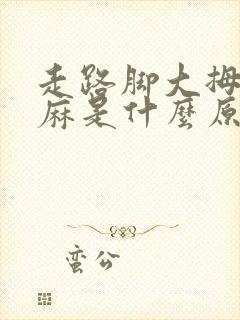 走路脚大拇
麻是什麼原
蛮公